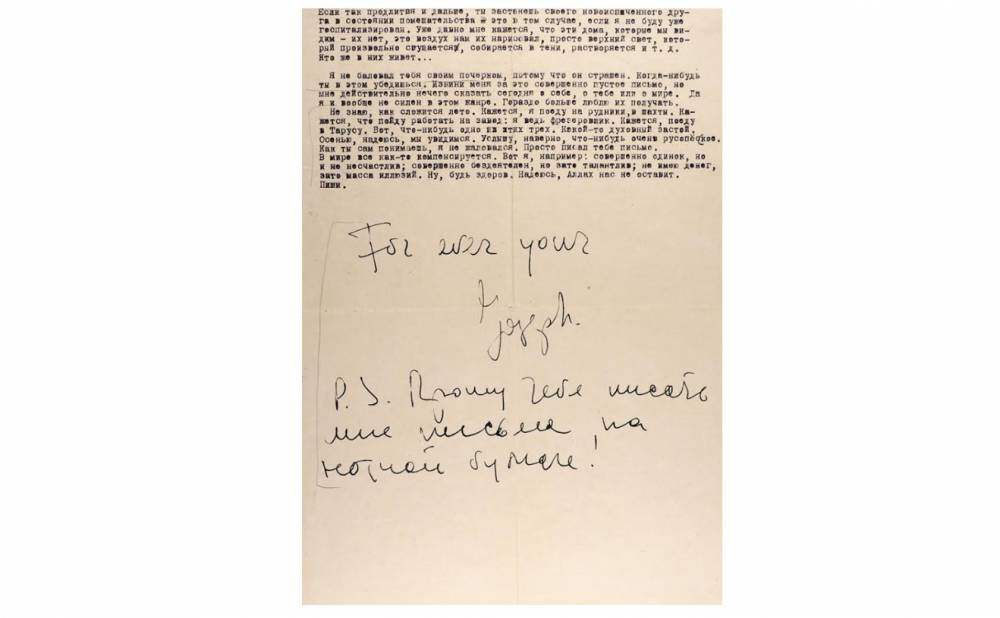 Если так продлится и дальше, ты застанешь своего новоиспеченного дру-
га в состоянии помешательства – это в том случае, если я не буду уже
госпитализирован. Уже давно мне кажется, что эти дома, которые мы ви-
дим – их нет, это воздух нам их нарисовал, просто верхний свет, кото-
рый произвольно сгущается, собирается в тени, растворяется и т. д.
Кто же в них живет...
Я не баловал тебя своим почерком, потому что он страшен. Когда-нибудь
ты в этом убедишься. Извини меня за это совершенно пустое письмо, но
мне действительно нечего сказать сегодня о себе, о тебе или о мире. Да
я и вообще не силен в этом жанре. Гораздо больше люблю их получать.
Не знаю, как сложится лето. Кажется, я поеду на рудники, в шахты. Ка-
жется, что пойду работать на завод: я ведь фрезеровщик. Кажется, поеду
в Тарусу. Вот, что-нибудь одно из этих трех. Какой-то духовный застой.
Осенью, надеюсь, мы увидимся. Услышу, наверно, что-нибудь очень русопёское.
Как ты сам понимаешь, я не жаловался. Просто писал тебе письмо.
В мире все как-то компенсируется. Вот я, например: совершенно одинок, но
и не несчастлив; совершенно бездеятелен, но зато талантлив; не имею денег,
зато масса иллюзий. Ну, будь здоров. Надеюсь, Аллах нас не оставит.
Пиши.
For ever your
Joseph.
P.S. тебе писать
мне письма на
нотной бумаге!